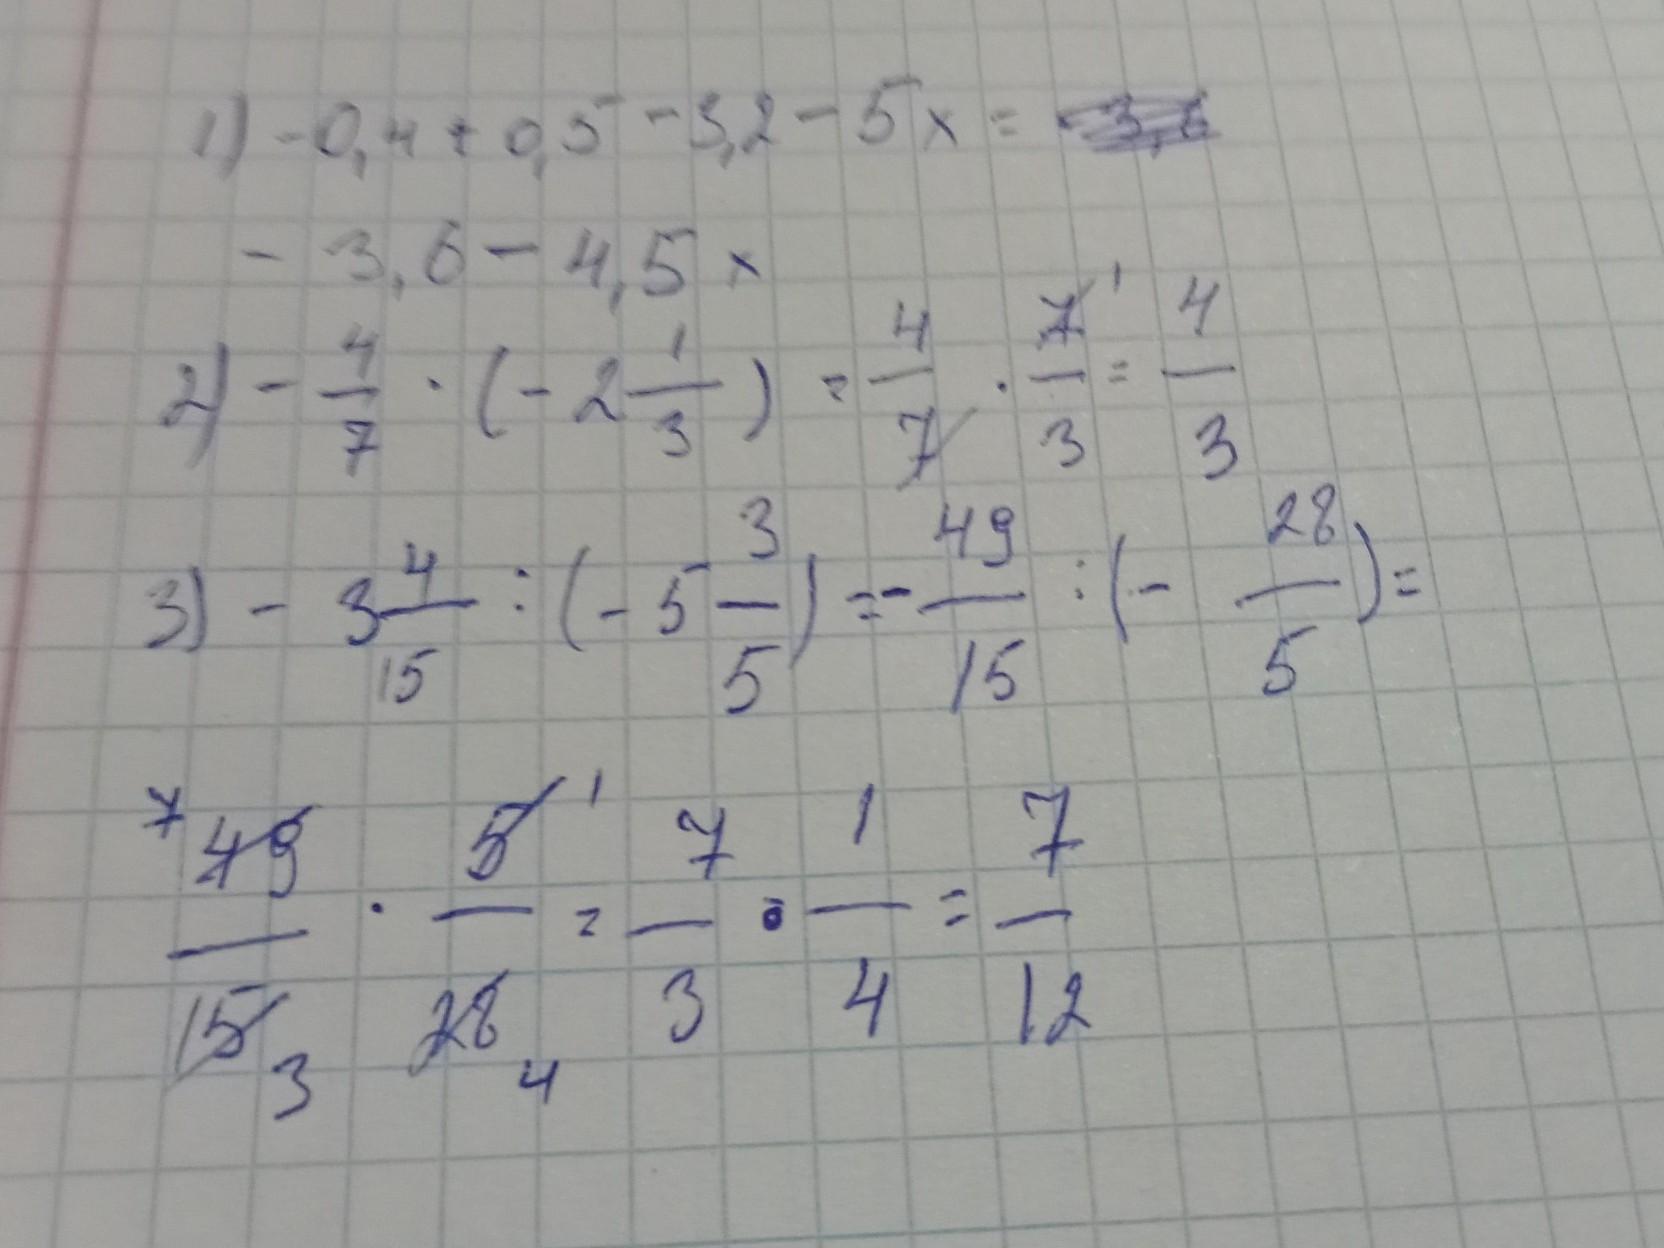 1) -0,4 + 0,5 - 3,2 - 5x = -3,6
- 3,6 - 4,5 x
2) - 4/7 · (- 2 1/3) = 4/7 · 7/3 1 = 4/3
3) - 3 4/15 : (- 5 3/5) = - 49/15 : (- 28/5) =
7 49/15 3 · 5/28 1 4 = 7/3 · 1/4 = 7/12